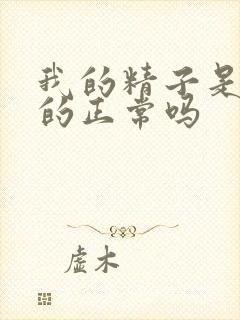 我的精子是
的正常吗
虚木